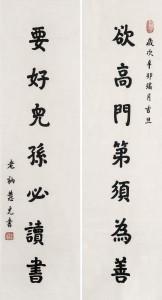 歲次辛卯瑞月吉旦
欲高門第須為善
要好兒孫必讀書
老衲慧光書